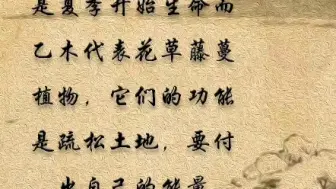 是夏季开始生命而
乙木代表花草藤蔓
植物，它们的功能
是疏松土地，要付
出自己的能量